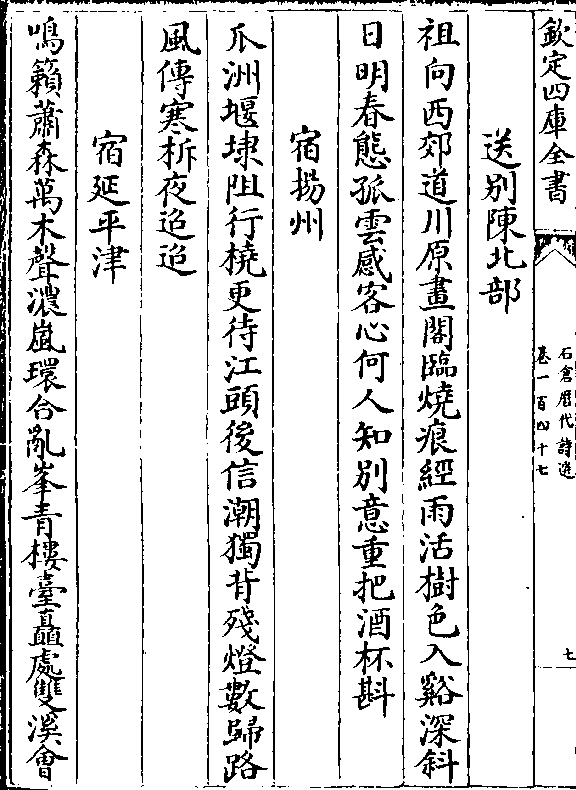 欽定四庫全書
石倉歷代詩選
卷一百四十七
七
送別陳北部
祖向西郊道川原畫閣臨燒痕經雨活樹色入谿深斜
日明春態孤雲感客心何人知別意重把酒杯斟
宿揚州
瓜洲堰埭阻行橈更待江頭後信潮獨背殘燈數歸路
風傳寒柝夜迢迢
宿延平津
鳴籟蕭森萬木聲濃嵐環合亂峯青樓臺矗處雙溪會